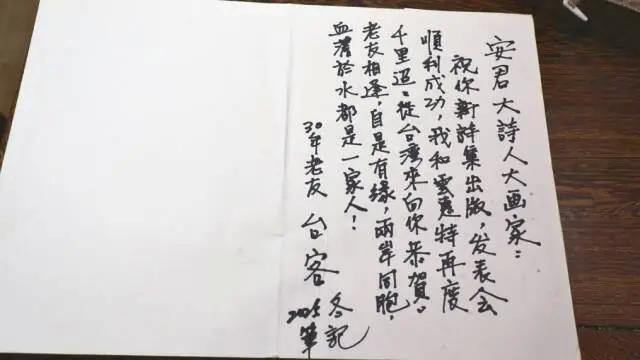 安君大詩人大画家：
祝你新詩集出版，发表会
順利成功，我和雲遠特再度
千里迢迢從台灣來向你恭賀。
老友相逢，自是有缘，兩岸同胞，
血濃於水都是一家人！
30年老友 台客
2025 冬記
筆